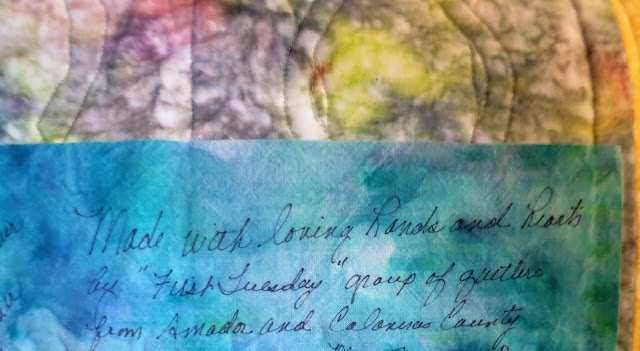 Made with loving hands and hearts
by "First Tuesday" group of quilters
from Amador and Calaveras County